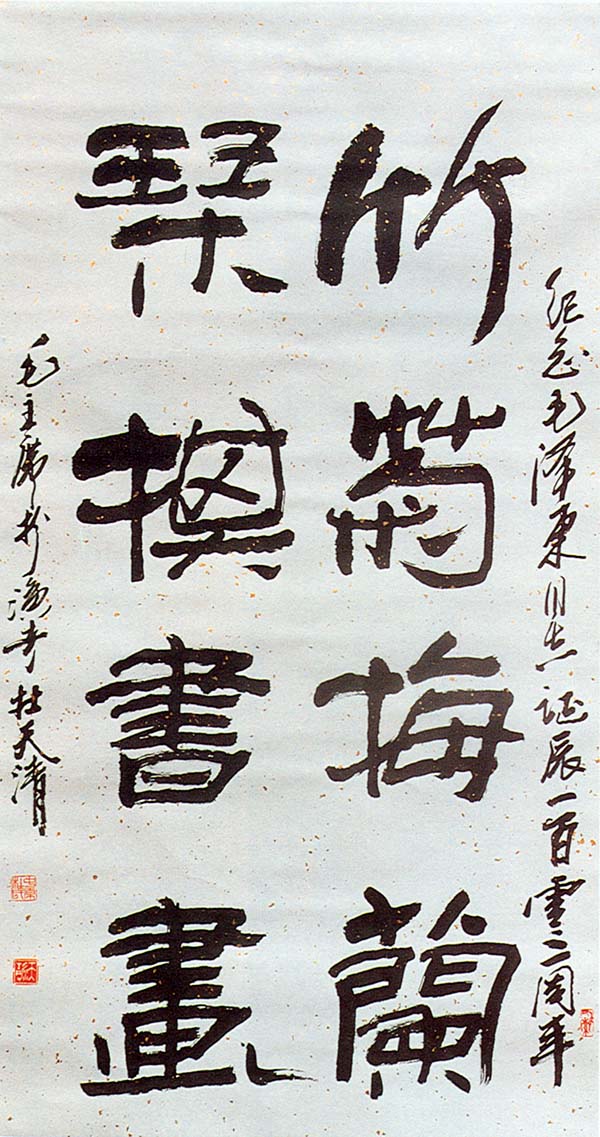 纪念毛泽东同志诞辰一百零二周年
竹菊梅蘭
琴棋書畫
毛主席扮演者杜天清